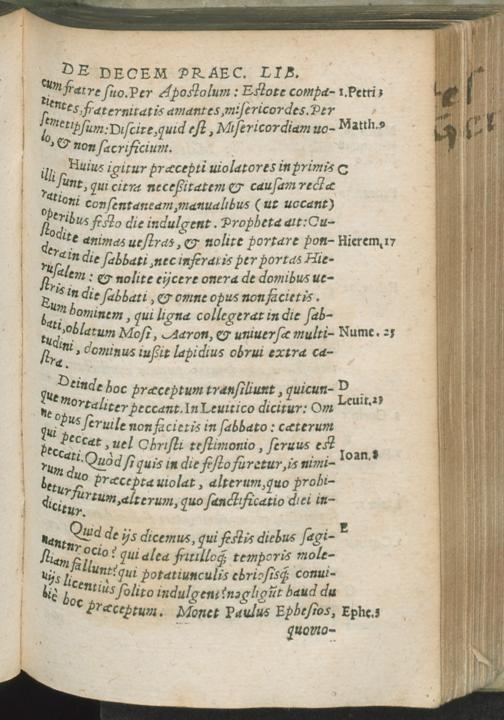 DE DECEM PRAEC. LIB.
cum fratre suo. Per Apostolum: Estote compa- 1. Petri 3
tientes, fraternitatis amantes, misericordes. Per
semetipsum: Discite, quid est, Misericordiam uo- Matth. 9
lo, & non sacrificium.
Huius igitur præcepti uiolatores in primis C
illi sunt, qui citra neceßitatem & causam rectæ
rationi consentaneam, manualibus (ut uocant)
operibus festo die indulgent. Propheta ait: Cu-
stodite animas uestras, & nolite portare pon- Hierem. 17
dera in die sabbati, nec inferatis per portas Hie-
rusalem: & nolite eijcere onera de domibus ue-
stris in die sabbati, & omne opus non facietis.
Eum hominem, qui ligna collegerat in die sab-
bati, oblatum Mosi, Aaron, & uniuersæ multi- Nume. 25
tudini, dominus iußit lapidius obrui extra ca-
stra.
Deinde hoc præceptum transiliunt, quicun- D
que mortaliter peccant. In Leuitico dicitur: Om Leuit. 23
ne opus seruile non facietis in sabbato: cæterum
qui peccat, uel Christi testimonio, seruus est
peccati. Quòd si quis in die festo furetur, is nimi- Ioan. 8
rum duo præcepta uiolat, alterum, quo prohi-
betur furtum, alterum, quo sanctificatio diei in-
dicitur.
Quid de ijs dicemus, qui festis diebus sagi- E
nantur ocio? qui alea fritilloq́; temporis mole-
stiam fallunt? qui potatiunculis ebriosisq́; conui-
uijs licentiùs solito indulgent? negligũt haud du
biè hoc præceptum. Monet Paulus Ephesios, Ephe. 5
quomo-